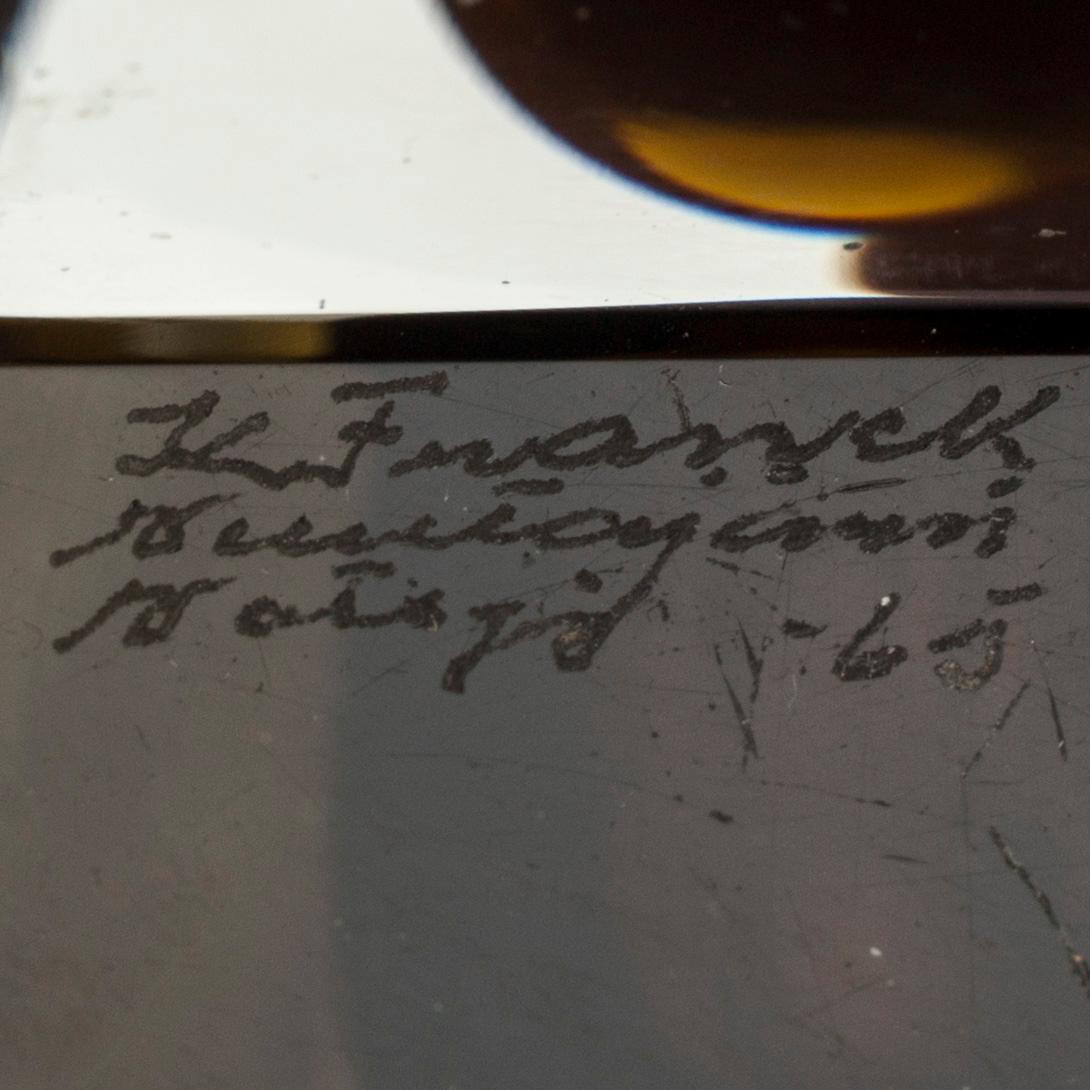 K Franck
Nuutajärvi
Notsjö -65